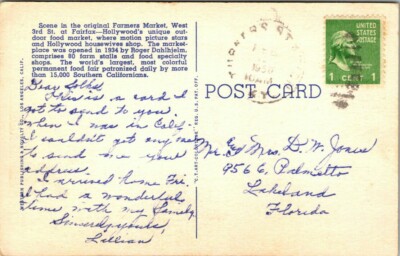 Scene in the original Farmers Market, West
3rd St. at Fairfax—Hollywood's unique out-
door food market, where motion picture stars
and Hollywood housewives shop. The market-
place was opened in 1934 by Roger Dahlhjelm,
comprises 80 farm stalls and food specialty
shops. The world's largest, most colorful
permanent food fair patronized daily by more
than 15,000 Southern Californians.
Dear Folks
This is a card I
not to send to you
when I was in Calif.
I couldn't get any one
to send me your
address.
I arrived home Fri.
I had a wonderful
time with my family
Sincerely yours,
Lillian
POST CARD
UNITED
STATES
POSTAGE
1 CENT 1
Mr. and Mrs. D. W. Jones
956 E. Palmetto
Lakeland
Florida